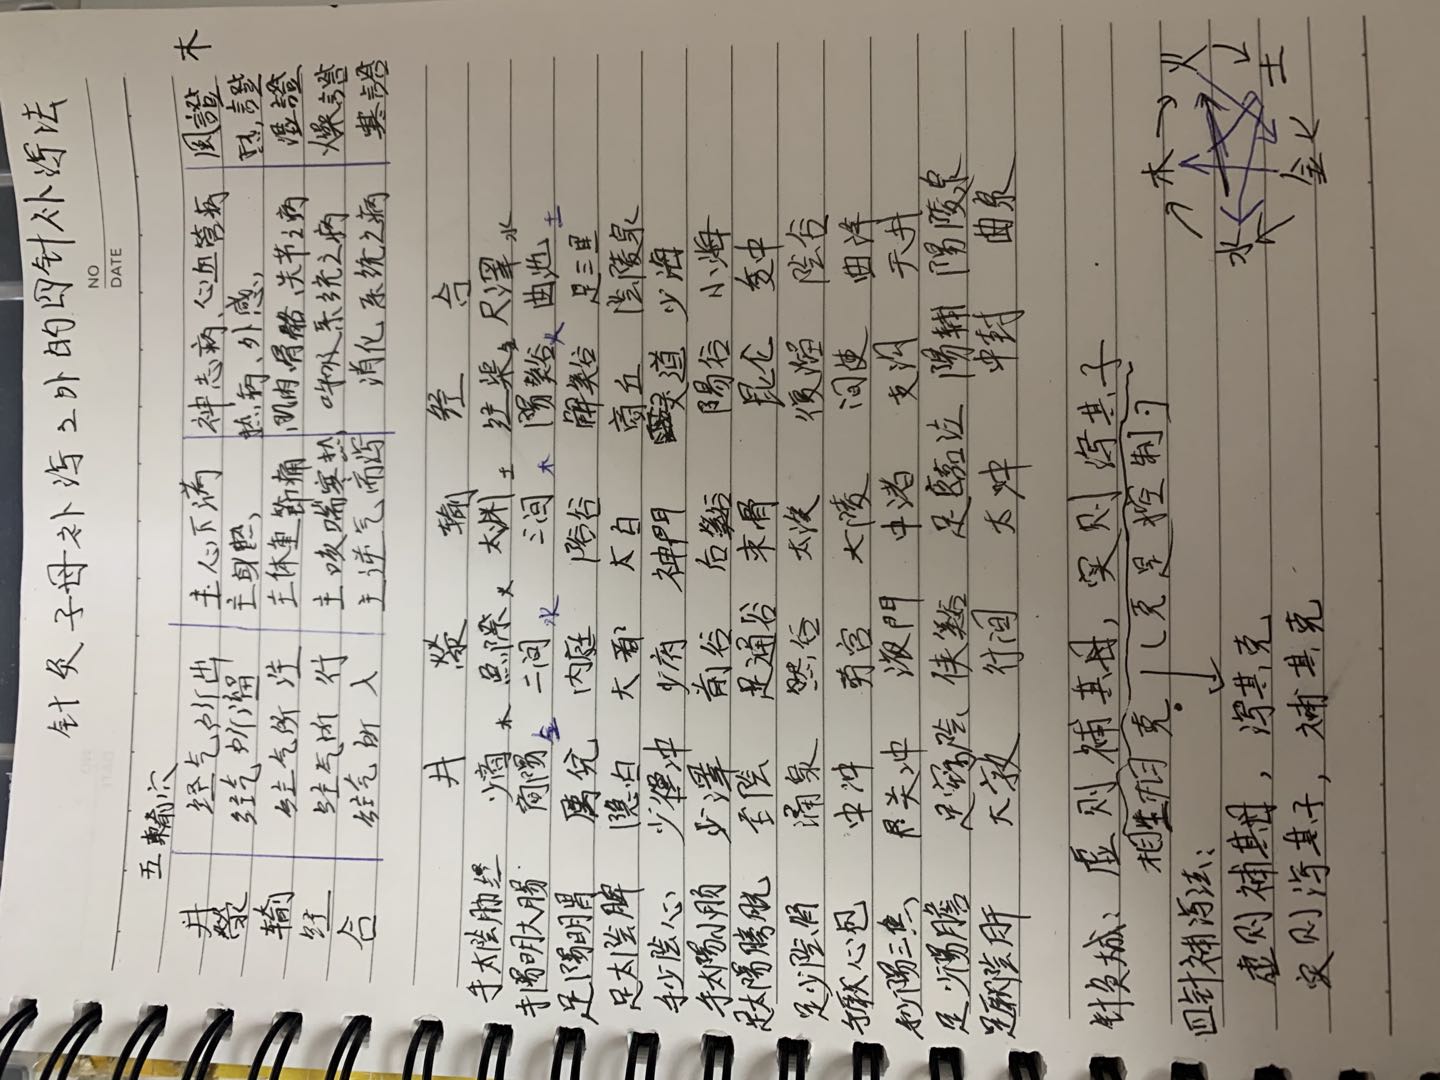 针灸子母补泻之外的四针补泻法
NO
DATE
五输穴
井 经气所出 主心下满 神志病、心血管病 風證 木
荥 经气所溜 主身熱 热病、外感 熱證
输 经气所注 主体重節痛 肌肉骨骼、关节之病 湿證
经 经气所行 主咳喘寒热 呼吸系统之病 燥證
合 经气所入 主逆气而泻 消化系统之病 寒證
井 荥 输 经 合
手太陰肺经 少商 木 魚際 火 太渊 土 经渠 金 尺澤 水
手陽明大肠 商陽 金 二间 水 三间 木 陽谿 火 曲池 土
足陽明胃 厲兌 内庭 陷谷 解谿 足三里
足太陰脾 隐白 大都 太白 商丘 陰陵泉
手少陰心 少冲 少府 神門 灵道 少海
手太陽小肠 少澤 前谷 后谿 陽谷 小海
足太陽膀胱 至陰 足通谷 束骨 昆仑 委中
足少陰腎 涌泉 然谷 太溪 復溜 陰谷
手厥心包 中冲 劳宫 大陵 间使 曲泽
手少陽三焦 関冲 液門 中渚 支沟 天井
足少陽膽 足窍陰 侠谿 足臨泣 陽輔 陽陵泉
足厥陰肝 大敦 行间 太冲 中封 曲泉
木 火 土 金 水
针灸城：虚则補其母，实则泻其子
相生 相克。（克是控制）
四针補泻法：
虚则補其母，泻其克
实则泻其子，補其克